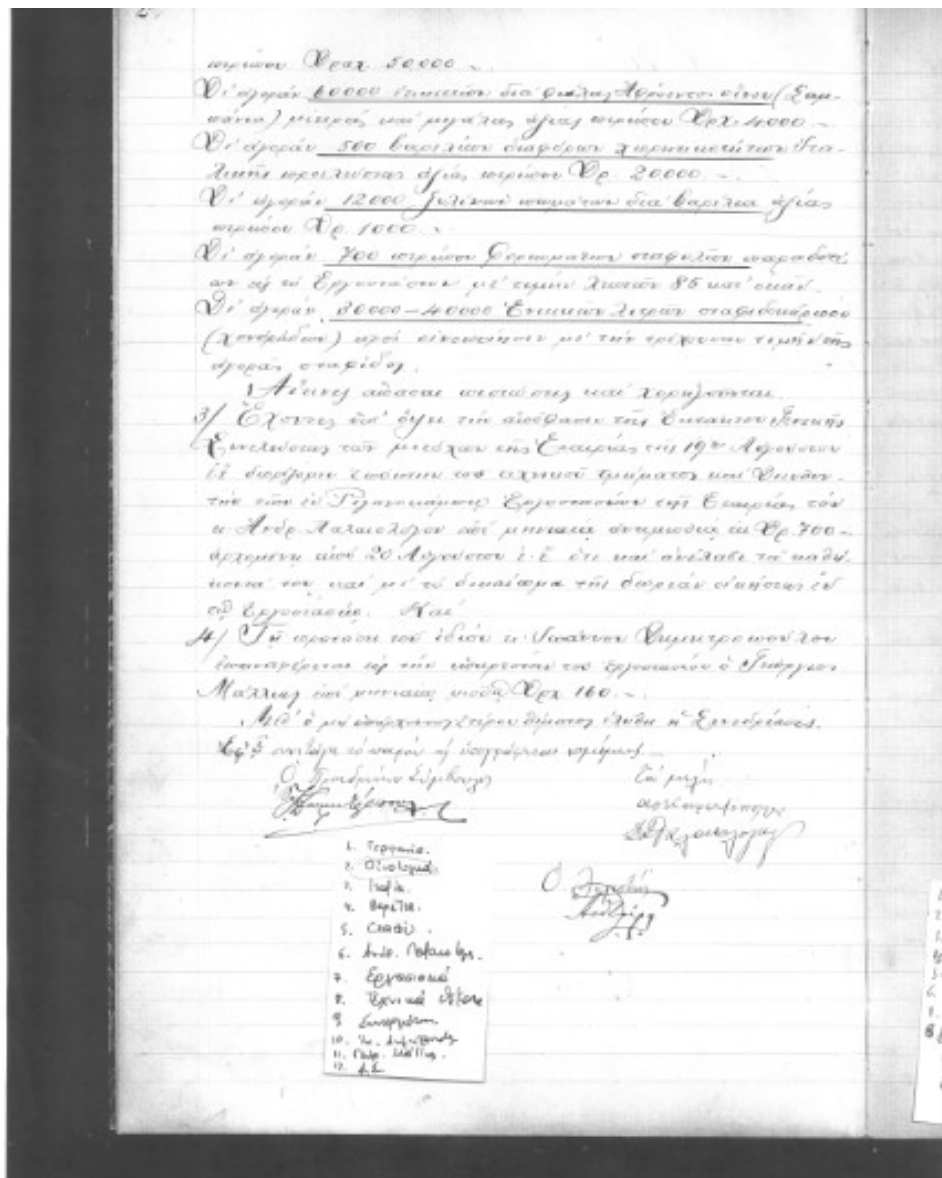 περίπου Δραχ. 50.000.-
Δι' αγοράν 60000 ετικετών διά φιάλας Αφρώντος οίνου (Σαμ-
πάνια) μικράς και μεγάλας αξίας περίπου Δρχ. 4000.-
Δι' αγοράν 500 βαρελίων διαφόρων χωρητικοτήτων Ιτα-
λικής προελεύσεως αξίας περίπου Δρ. 20000.-
Δι' αγοράν 12000 ξυλίνων πωμάτων διά βαρέλια αξίας
περίπου Δρ. 1000.-
Δι' αγοράν 700 περίπου φορτωμάτων σταφυλών παραδοτέ-
ων εις το Εργοστάσιον με τιμήν λεπτών 85 κατ' οκάν.
Δι' αγοράν 30000-40000 Ενετικών λιτρών σταφιδοκάρπου
(χονδράδων) προς οινοποίησιν με την τρέχουσαν τιμήν της
αγοράς σταφίδος.
Αίτινες άπασαι πιστώσεις και χορηγούνται.
3/ Έχοντες υπ' όψει την απόφασιν της Εκτάκτου Γενικής
Συνελεύσεως των μετόχων της Εταιρίας της 19ης Αυγούστου
ε.έ. διορίζομεν Επόπτην του τεχνικού τμήματος και Διευθυν-
τήν των εν Εργοστασίων της Εταιρίας τον
κ. Ανδρ. Παλαιολόγον επί μηνιαία αντιμισθία εκ Δρ. 700-
αρχομένη από 20 Αυγούστου ε.έ. ότε και ανέλαβε τα καθή-
κοντά του και με το δικαίωμα της δωρεάν οικήσεως εν
τω Εργοστασίω. Και
4/ Τη προτάσει του ιδίου κ. Ιωάννου Δημητροπούλου
επαναφέρεται εις την υπηρεσίαν του εργοστασίου ο Γεώργιος
Μάλλιας επί μηνιαίω μισθώ Δρχ 160.-
Μεθ' ό μη υπάρχοντος ετέρου θέματος ελύθη η Συνεδρίασις.
Εφ' ώ συνετάγη το παρόν και υπογράφεται νομίμως.-
Ο Προεδρεύων Σύμβουλος
Τα μέλη
1. Γερμανία.
2. Οινολογικά
3.
4. Βαρέλια.
5.
6. Ανδρ. Παλαιολόγ.
7. Εργασιακά
8. Τεχνικά
9.
10.
11.
12. Δ.Σ.